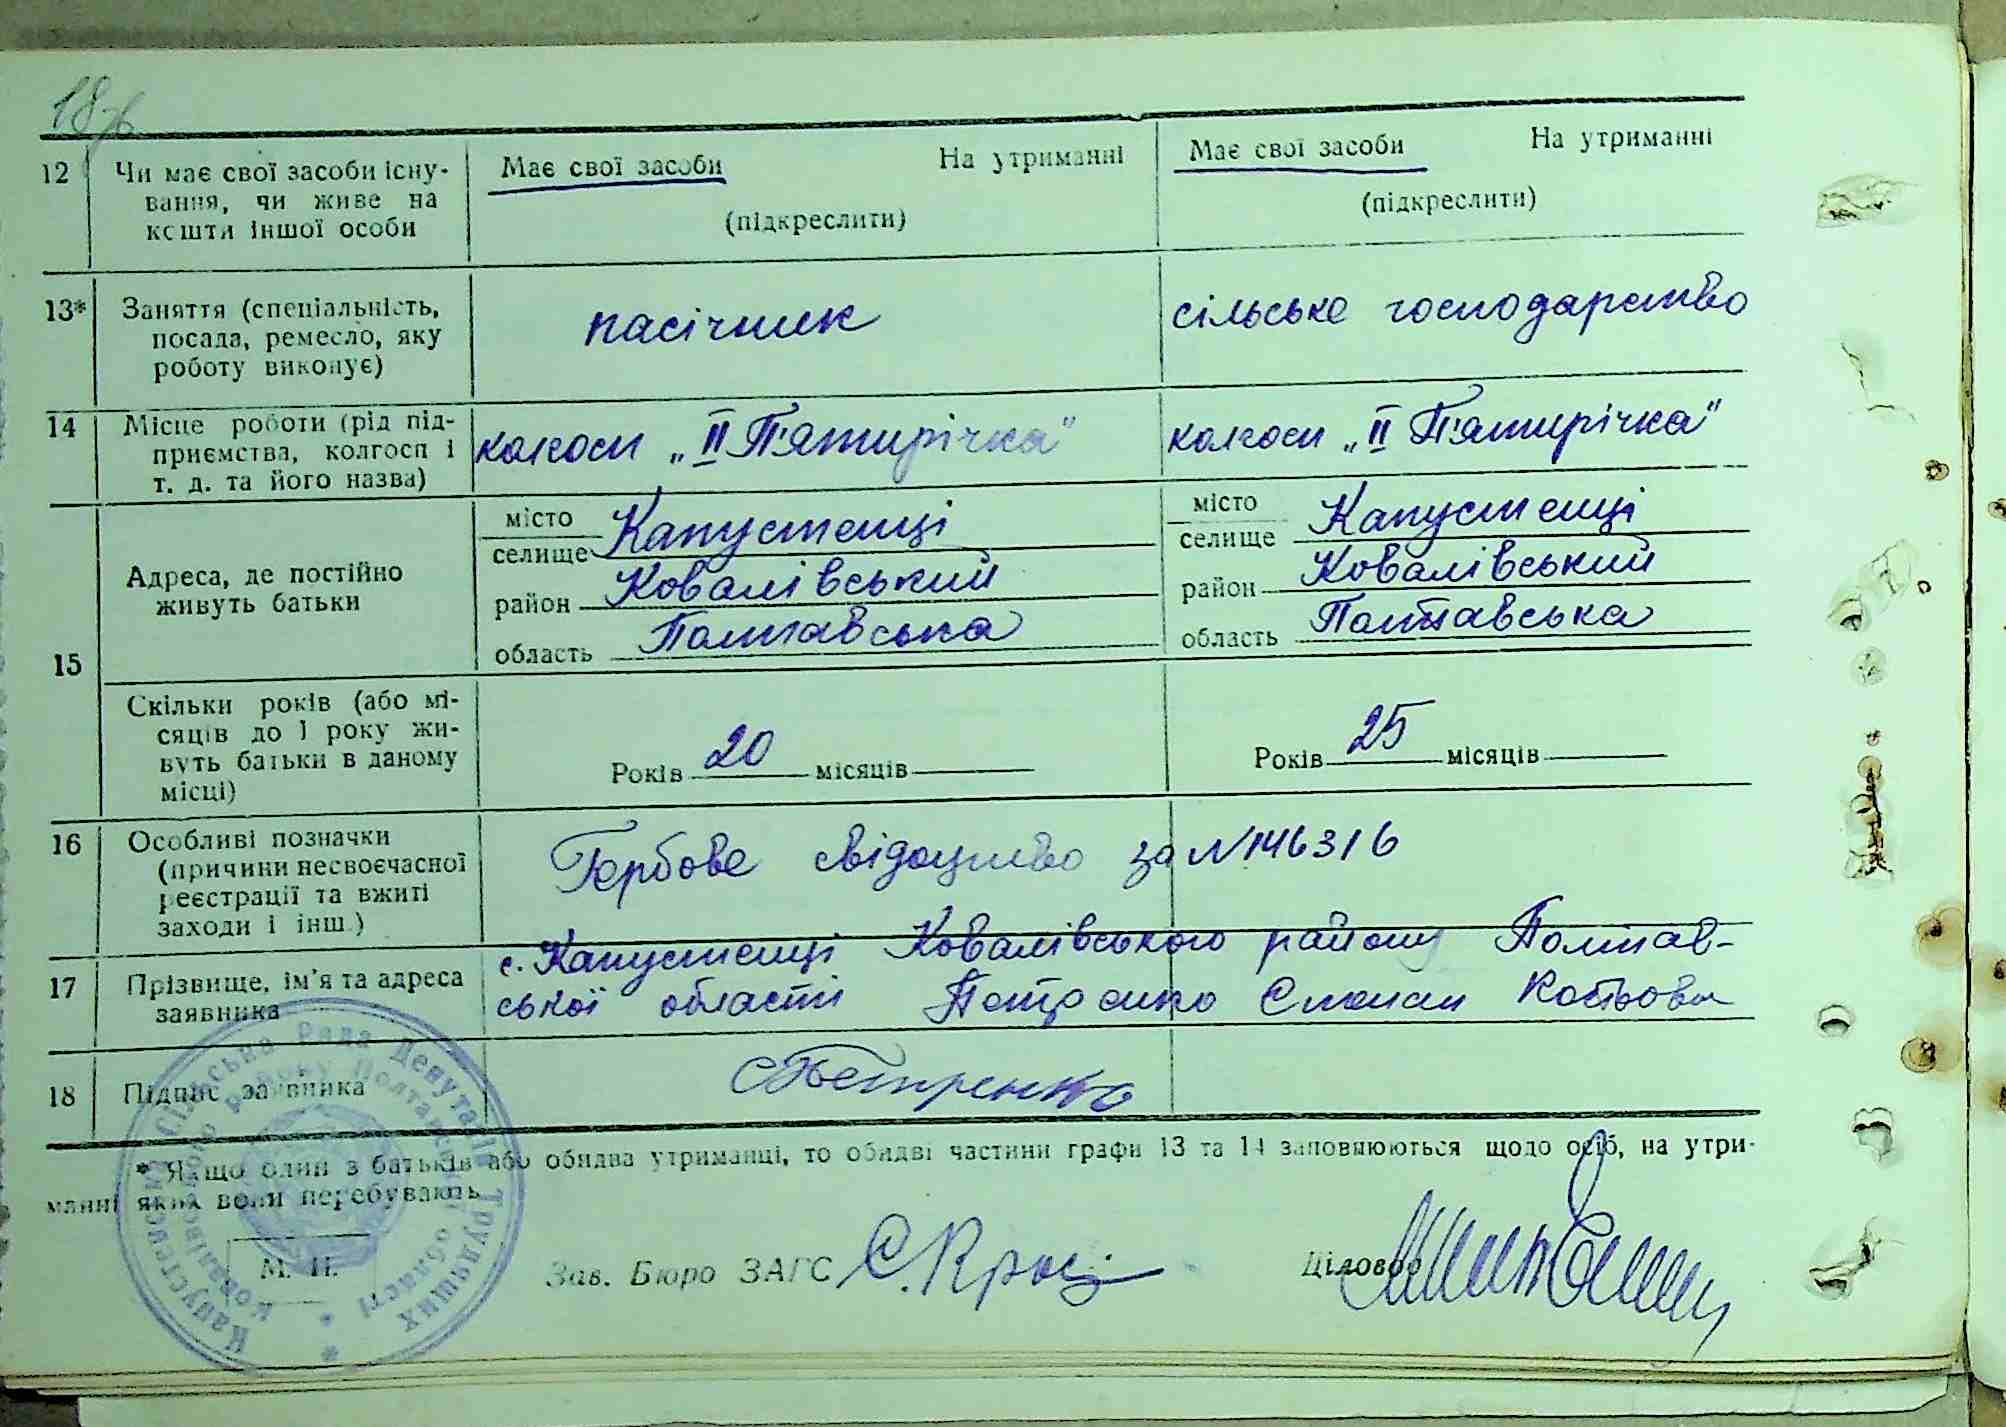 12 Чи має свої засоби існу- Має свої засоби На утриманні Має свої засоби На утриманні
вання, чи живе на (підкреслити) (підкреслити)
кошти іншої особи
13* Заняття (спеціальність, пасічник сільське господарство
посада, ремесло, яку
роботу виконує)
14 Місце роботи (рід під- колгосп „II П'ятирічка" колгосп „II П'ятирічка"
приємства, колгосп і
т. д. та його назва)
15 Адреса, де постійно
живуть батьки
місто селище Капустенці місто селище Капустенці
район Ковалівський район Ковалівський
область Полтавська область Полтавська
Скільки років (або мі-
сяців до 1 року жи-
вуть батьки в даному Років 20 місяців Років 25 місяців
місці)
16 Особливі позначки
(причини несвоєчасної Гербове свідоцтво за N 146316
реєстрації та вжиті
заходи і інш.)
17 Прізвище, ім'я та адреса с. Капустенці Ковалівського району Полтав-
заявника ської області Петренко Степан
18 Підпис заявника С Петренко
* Якщо один з батьків або обидва утриманці, то обидві частини графи 13 та 14 заповнюються щодо осіб, на утри-
манні яких вони перебувають
Капустенська Сільська Рада Депутатів Трудящих
Ковалівського району Полтавської області
М. П. Зав. Бюро ЗАГС Діловод